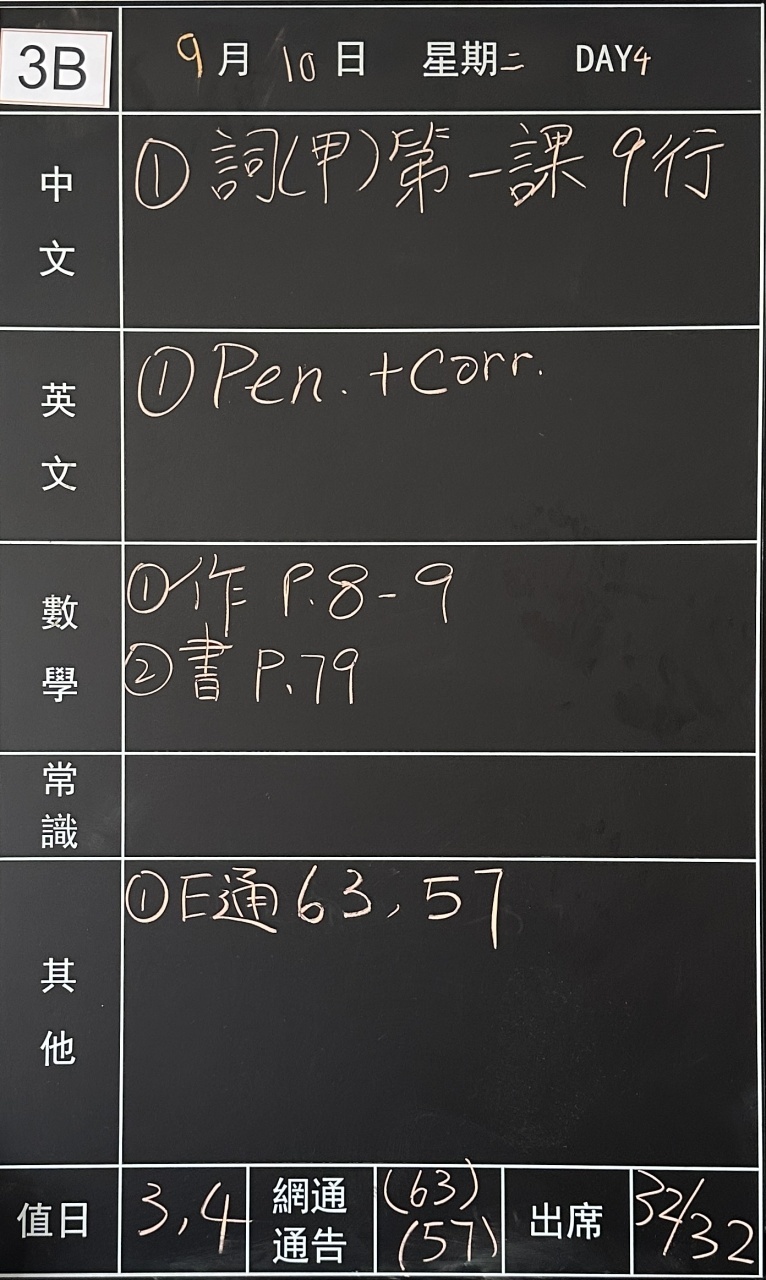 3B
9月10日 星期二 DAY4
中文
① 詞(甲)第一課 9行
英文
① Pen. + Corr.
數學
① 作 P.8-9
② 書 P.79
常識
其他
① E通 63, 57
值日 3,4 網通通告 (63) (57) 出席 32/32